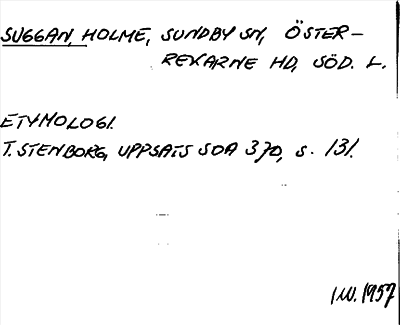 SUGGAN, HOLME, SUNDBY SN, ÖSTER-
REKARNE HD, SÖD. L.
ETYMOLOGI.
T. STENBORG, UPPSATS SOA 370, s. 131.
1957